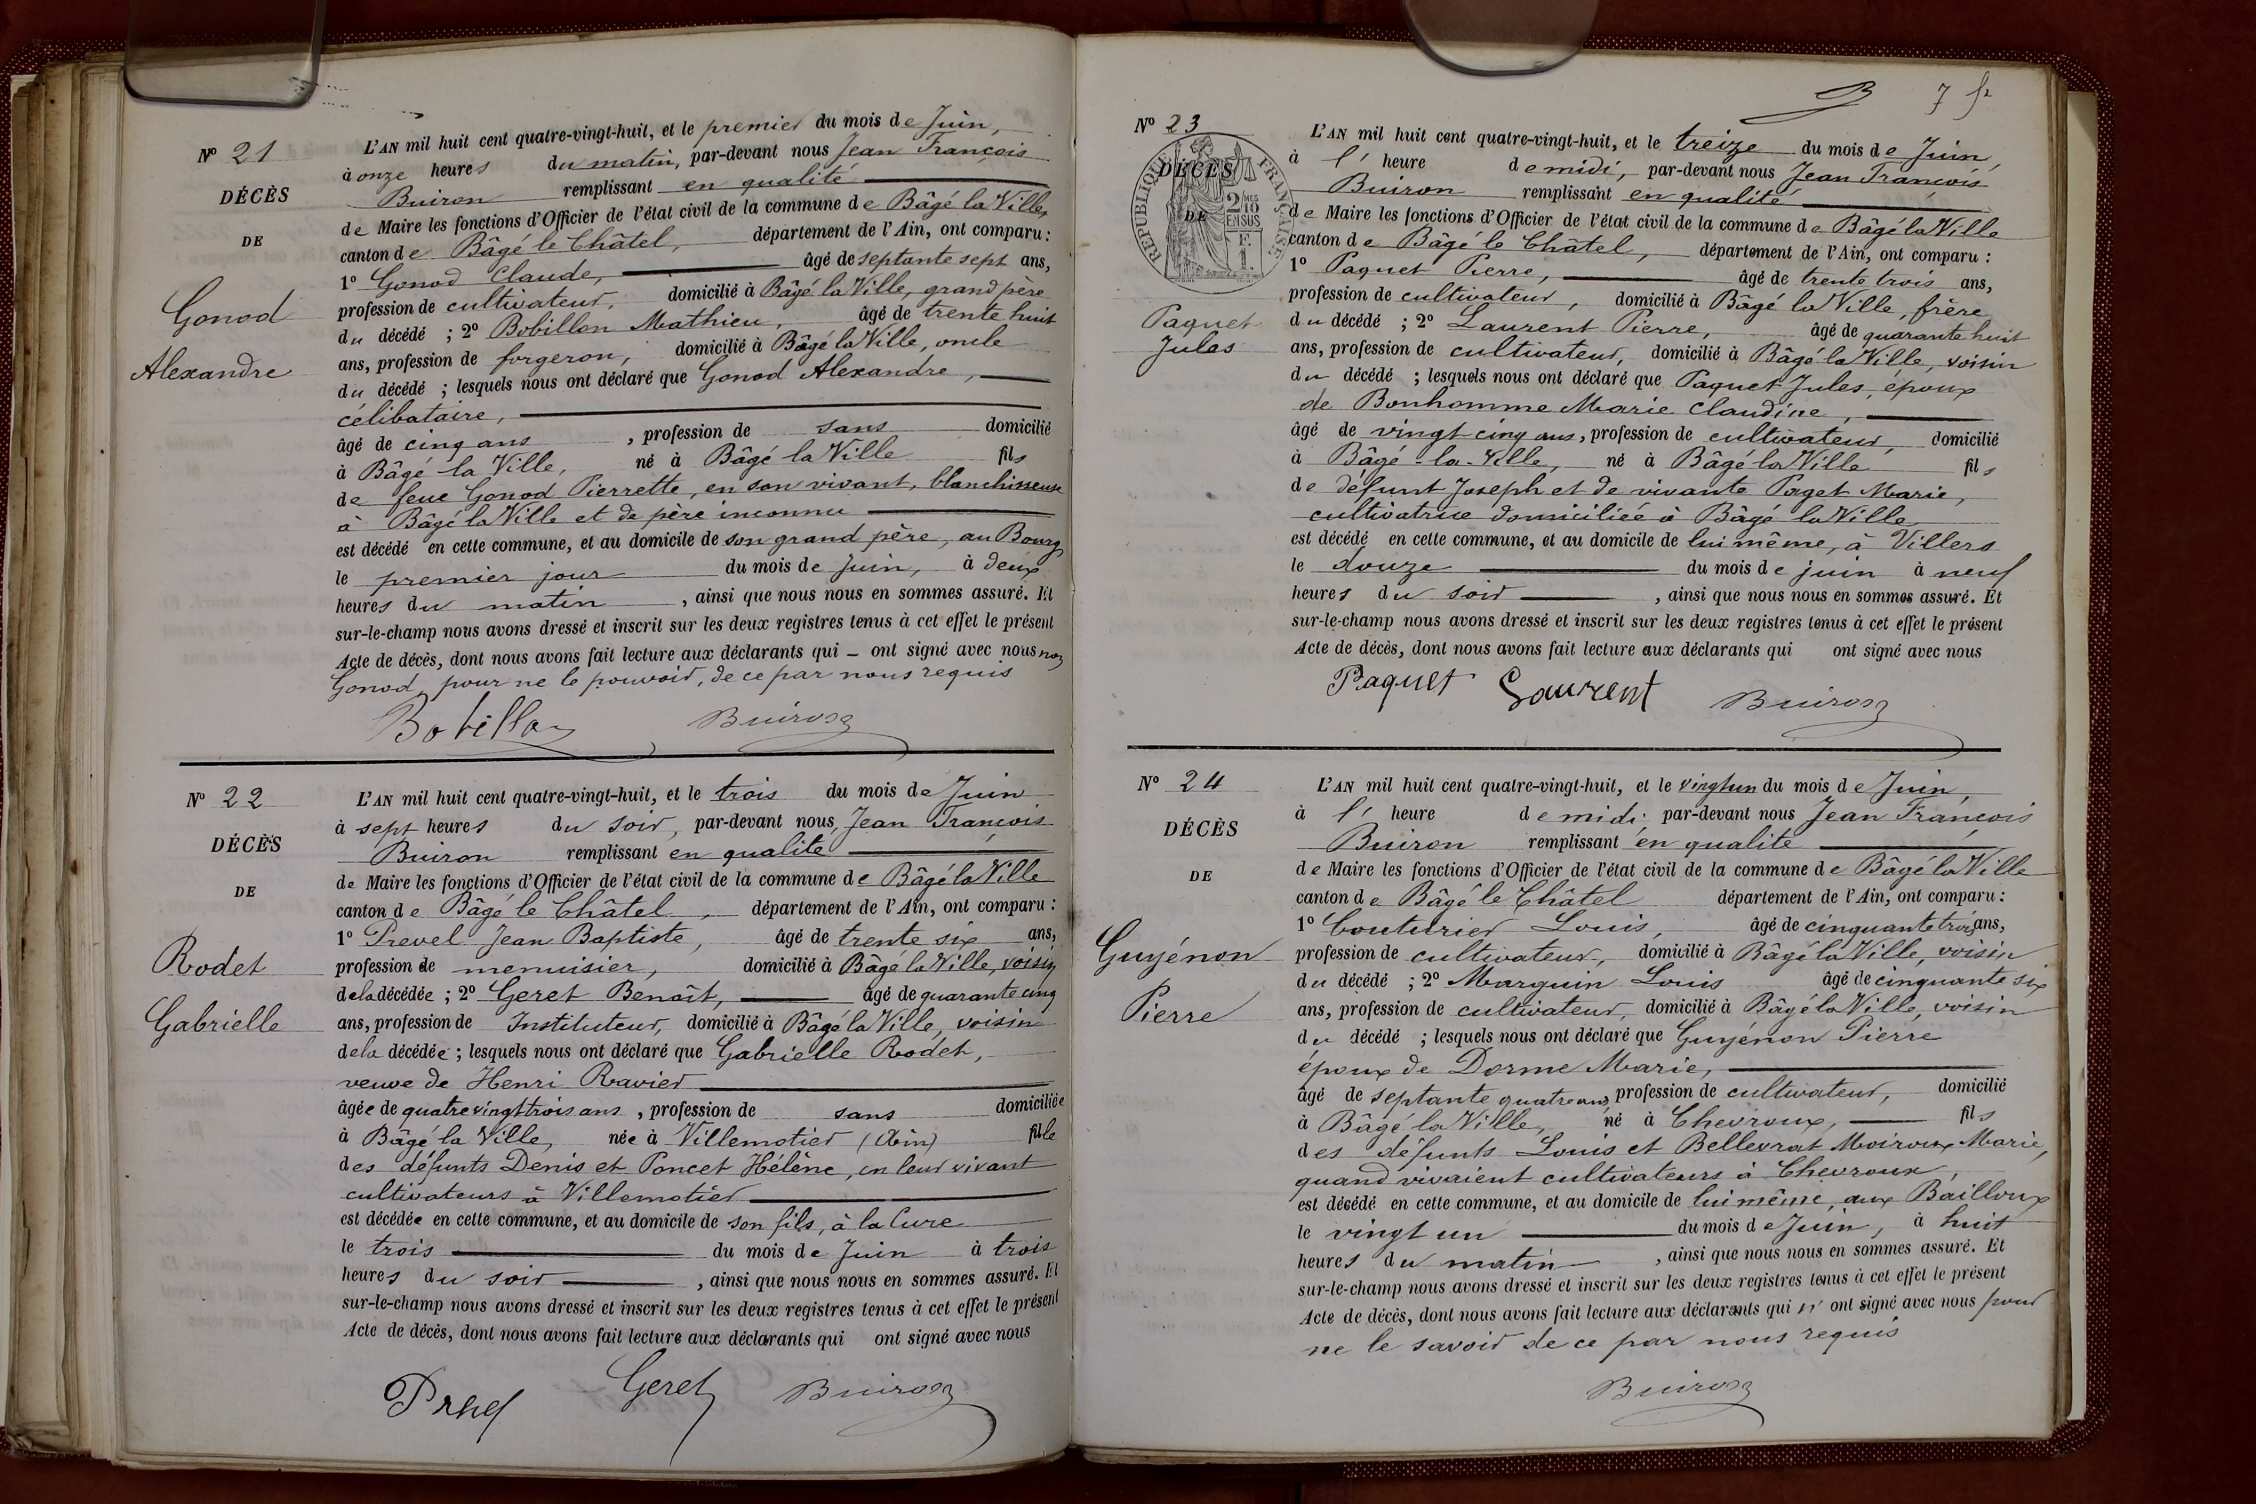 Nº 21
DÉCÈS
DE
Gonod
Alexandre
L'AN mil huit cent quatre-vingt-huit, et le premier du mois de Juin,
à onze heures du matin, par-devant nous Jean François
Buiron remplissant en qualité
de Maire les fonctions d'Officier de l'état civil de la commune de Bâgé la Ville,
canton de Bâgé le Châtel, département de l'Ain, ont comparu :
1º Gonod Claude, âgé de septante sept ans,
profession de cultivateur, domicilié à Bâgé la Ville, grand père
du décédé ; 2º Bobillon Mathieu, âgé de trente huit
ans, profession de forgeron, domicilié à Bâgé la Ville, oncle
du décédé ; lesquels nous ont déclaré que Gonod Alexandre,
célibataire,
âgé de cinq ans , profession de sans domicilié
à Bâgé la Ville, né à Bâgé la Ville fils
de feue Gonod Pierrette, en son vivant, blanchisseuse
à Bâgé la Ville et de père inconnu
est décédé en cette commune, et au domicile de son grand père, au Bourg
le premier jour du mois de Juin, à deux
heures du matin , ainsi que nous nous en sommes assuré. Et
sur-le-champ nous avons dressé et inscrit sur les deux registres tenus à cet effet le présent
Acte de décès, dont nous avons fait lecture aux déclarants qui – ont signé avec nous non
Gonod, pour ne le pouvoir, de ce par nous requis
Bobillon Buiron
Nº 22
DÉCÈS
DE
Rodet
Gabrielle
L'AN mil huit cent quatre-vingt-huit, et le trois du mois de Juin
à sept heures du soir, par-devant nous, Jean François
Buiron remplissant en qualité
de Maire les fonctions d'Officier de l'état civil de la commune de Bâgé la Ville
canton de Bâgé le Châtel, département de l'Ain, ont comparu :
1º Prevel Jean Baptiste, âgé de trente six ans,
profession de menuisier, domicilié à Bâgé la Ville, voisin
de la décédée ; 2º Geret Benoît, âgé de quarante cinq
ans, profession de Instituteur, domicilié à Bâgé la Ville, voisin
de la décédée ; lesquels nous ont déclaré que Gabrielle Rodet,
veuve de Henri Ravier
âgée de quatre vingt trois ans , profession de sans domiciliée
à Bâgé la Ville, née à Villemotier (Ain) fille
des défunts Denis et Poncet Hélène, en leur vivant
cultivateurs à Villemotier
est décédée en cette commune, et au domicile de son fils, à la Cure
le trois du mois de Juin à trois
heures du soir , ainsi que nous nous en sommes assuré. Et
sur-le-champ nous avons dressé et inscrit sur les deux registres tenus à cet effet le présent
Acte de décès, dont nous avons fait lecture aux déclarants qui ont signé avec nous
Geret Buiron
7
Nº 23
DÉCÈS
DE
RÉPUBLIQUE FRANÇAISE
2 MES 10 EN SUS
F. 1.
Paquet
Jules
L'AN mil huit cent quatre-vingt-huit, et le treize du mois de Juin,
à l' heure de midi, par-devant nous Jean François
Buiron remplissant en qualité
de Maire les fonctions d'Officier de l'état civil de la commune de Bâgé la Ville
canton de Bâgé le Châtel, département de l'Ain, ont comparu :
1º Paquet Pierre, âgé de trente trois ans,
profession de cultivateur, domicilié à Bâgé la Ville, frère
du décédé ; 2º Laurent Pierre, âgé de quarante huit
ans, profession de cultivateur, domicilié à Bâgé la Ville, voisin
du décédé ; lesquels nous ont déclaré que Paquet Jules, époux
de Bonhomme Marie Claudine,
âgé de vingt cinq ans, profession de cultivateur, domicilié
à Bâgé-la-Ville, né à Bâgé la Ville fils
de défunt Joseph et de vivante Paget Marie,
cultivatrice domiciliée à Bâgé la Ville
est décédé en cette commune, et au domicile de lui même, à Villers
le douze du mois de juin à neuf
heures du soir , ainsi que nous nous en sommes assuré. Et
sur-le-champ nous avons dressé et inscrit sur les deux registres tenus à cet effet le présent
Acte de décès, dont nous avons fait lecture aux déclarants qui ont signé avec nous
Paquet Laurent Buiron
Nº 24
DÉCÈS
DE
Guyénon
Pierre
L'AN mil huit cent quatre-vingt-huit, et le vingt un du mois de Juin,
à l' heure de midi par-devant nous Jean François
Buiron remplissant en qualité
de Maire les fonctions d'Officier de l'état civil de la commune de Bâgé la Ville
canton de Bâgé le Châtel département de l'Ain, ont comparu :
1º Couturier Louis, âgé de cinquante trois ans,
profession de cultivateur, domicilié à Bâgé la Ville, voisin
du décédé ; 2º Marguin Louis âgé de cinquante six
ans, profession de cultivateur, domicilié à Bâgé la Ville, voisin
du décédé ; lesquels nous ont déclaré que Guyénon Pierre
époux de Dorme Marie,
âgé de septante quatre ans, profession de cultivateur, domicilié
à Bâgé la Ville, né à Chevroux, fils
des défunts Louis et Bellevrat Moiroux Marie,
quand vivaient cultivateurs à Chevroux,
est décédé en cette commune, et au domicile de lui même, aux Bailloux
le vingt un du mois de Juin, à huit
heures du matin , ainsi que nous nous en sommes assuré. Et
sur-le-champ nous avons dressé et inscrit sur les deux registres tenus à cet effet le présent
Acte de décès, dont nous avons fait lecture aux déclarants qui n' ont signé avec nous pour
ne le savoir de ce par nous requis
Buiron